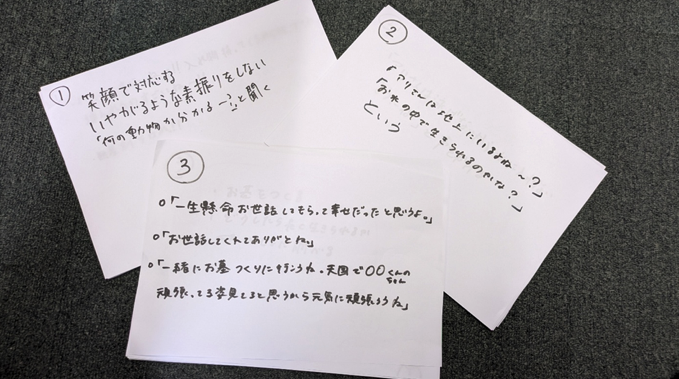 ①
笑顔で対応する
いやがるような素振りをしない
「何の動物か分かるー？」と聞く
②
「アリさんは地上にいるよね〜？」
「お水の中で生きられるのかな？」
という
③
○「一生懸命お世話してもらって幸せだったと思うよ。」
○「お世話してくれてありがとね。」
○「一緒にお墓つくりに行こうね。天国で〇〇くんの
ちゃん
頑張ってる姿見てると思うから元気に頑張ろうね」